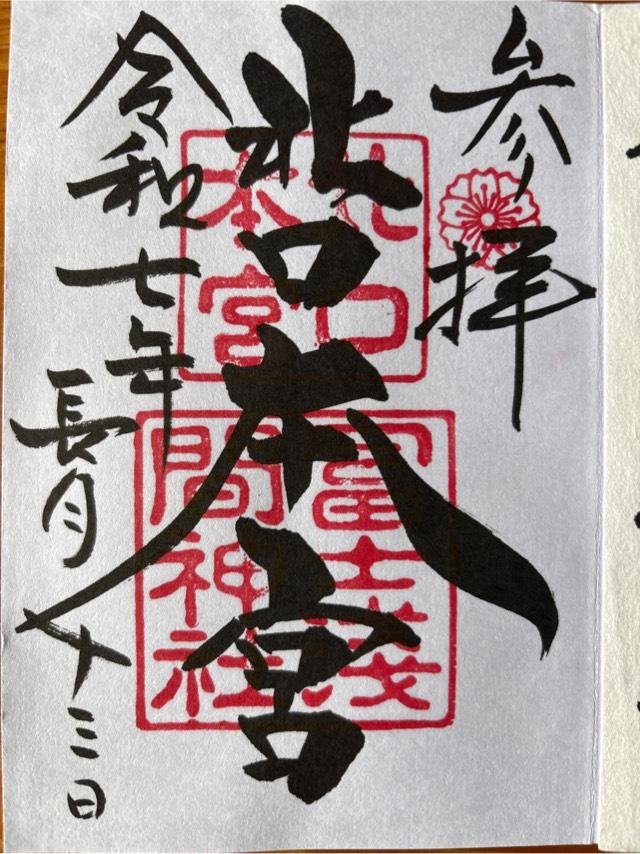 参拝
北口本宮
令和七年長月十三日
北口
本宮
冨士浅
間神社